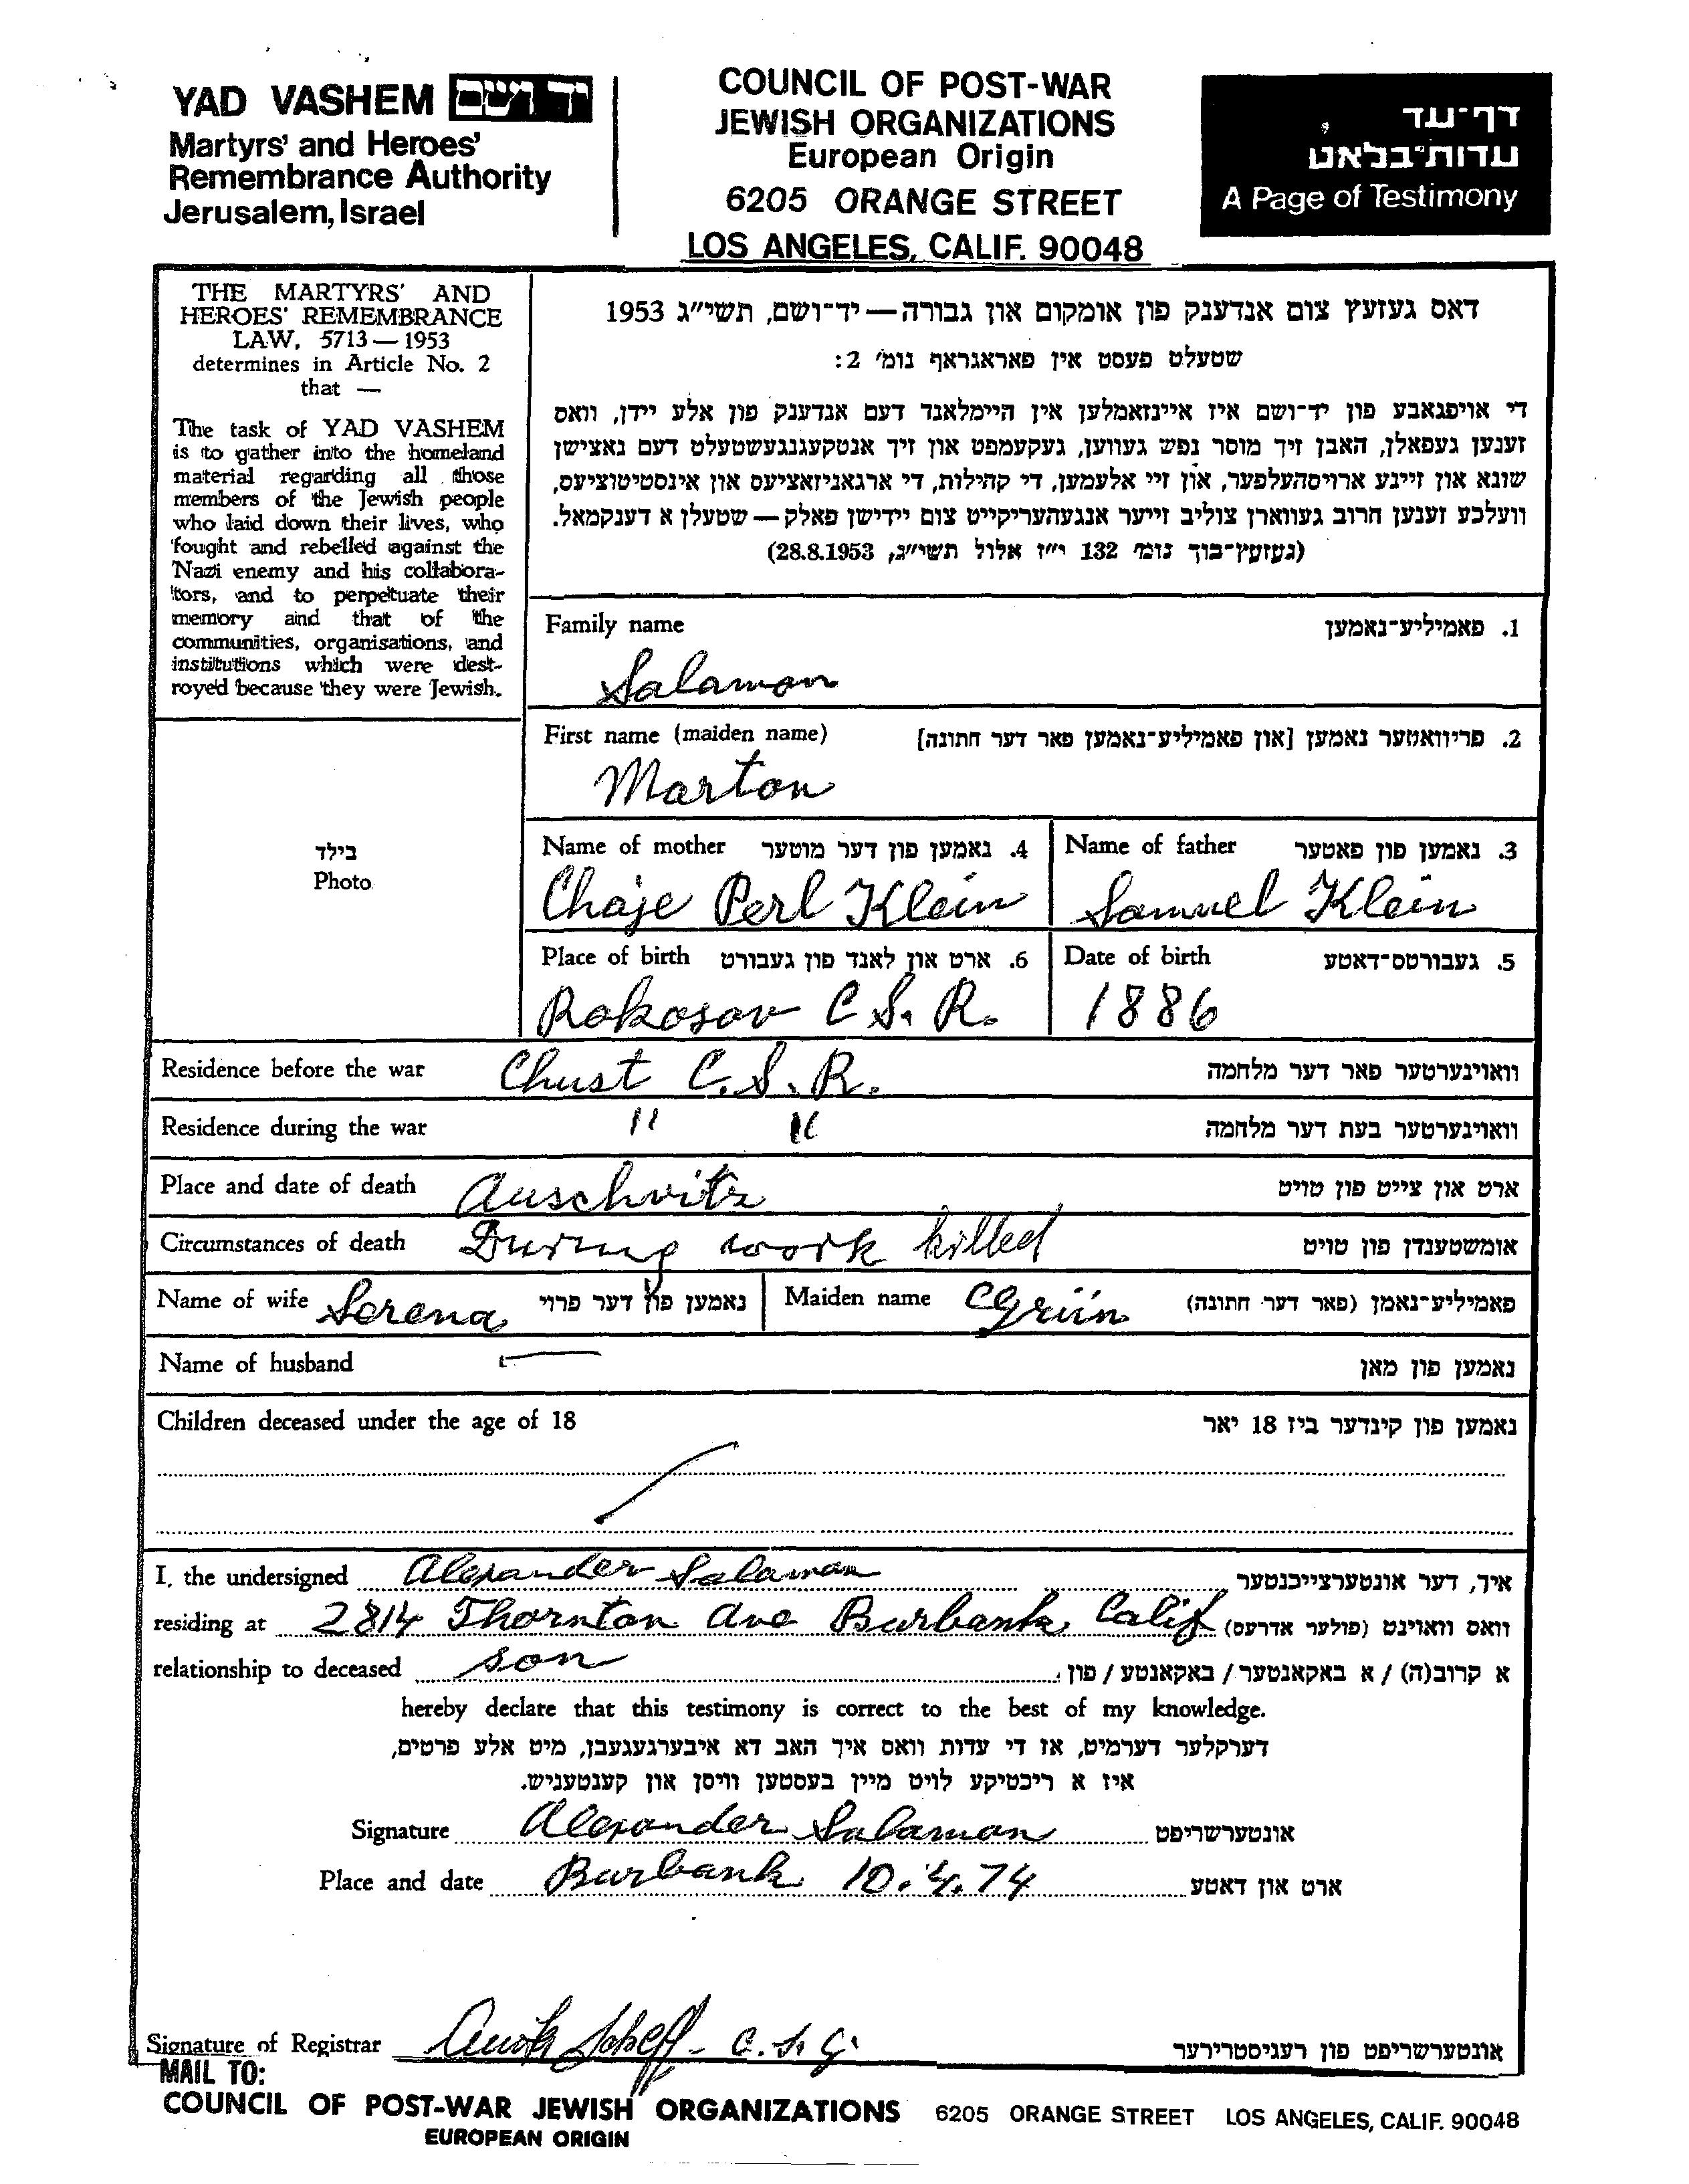 YAD VASHEM יד ושם
Martyrs' and Heroes'
Remembrance Authority
Jerusalem, Israel
COUNCIL OF POST-WAR
JEWISH ORGANIZATIONS
European Origin
6205 ORANGE STREET
LOS ANGELES, CALIF. 90048
דף־עד
עדות־בלאט
A Page of Testimony
THE MARTYRS' AND
HEROES' REMEMBRANCE
LAW, 5713—1953
determines in Article No. 2
that —
The task of YAD VASHEM
is to gather into the homeland
material regarding all those
members of the Jewish people
who laid down their lives, who
fought and rebelled against the
Nazi enemy and his collabora-
tors, and to perpetuate their
memory and that of the
communities, organisations, and
institutions which were dest-
royed because they were Jewish.
דאס געזעץ צום אנדענק פון אומקום און גבורה — יד־ושם, תשי״ג 1953
שטעלט פעסט אין פאראגראף נומ׳ 2:
די אויפגאבע פון יד־ושם איז איינזאמלען אין היימלאנד דעם אנדענק פון אלע יידן, וואס
זענען געפאלן, האבן זיך מוסר נפש געווען, געקעמפט און זיך אנטקעגנגעשטעלט דעם נאצישן
שונא און זיינע ארויסהעלפער, און זיי אלעמען, די קהילות, די ארגאניזאציעס און אינסטיטוציעס,
וועלכע זענען חרוב געווארן צוליב זייער אנגעהעריקייט צום יידישן פאלק — שטעלן א דענקמאל.
(געזעץ־בוך נומ׳ 132 י״ז אלול תשי״ג, 28.8.1953)
Family name 1. פאמיליע־נאמען
Salamon
First name (maiden name) 2. פריוואטער נאמען [און פאמיליע־נאמען פאר דער חתונה]
Marton
בילד
Photo
Name of mother 4. נאמען פון דער מוטער Name of father 3. נאמען פון פאטער
Chaje Perl Klein Samuel Klein
Place of birth 6. ארט און לאנד פון געבורט Date of birth 5. געבורטס־דאטע
Rokosov C.S.R. 1886
Residence before the war Chust C.S.R. וואוינערטער פאר דער מלחמה
Residence during the war " " וואוינערטער בעת דער מלחמה
Place and date of death Auschvitz ארט און צייט פון טויט
Circumstances of death During work killed אומשטענדן פון טויט
Name of wife Serena נאמען פון דער פרוי Maiden name Grün פאמיליע־נאמן (פאר דער חתונה)
Name of husband — נאמען פון מאן
Children deceased under the age of 18 נאמען פון קינדער ביז 18 יאר
I, the undersigned Alexander Salaman איך, דער אונטערצייכנטער
residing at 2814 Thornton Ave Burbank, Calif וואס וואוינט (פולער אדרעס)
relationship to deceased son א קרוב(ה) / א באקאנטער / באקאנטע / פון
hereby declare that this testimony is correct to the best of my knowledge.
דערקלער דערמיט, אז די עדות וואס איך האב דא איבערגעגעבן, מיט אלע פרטים,
איז א ריכטיקע לויט מיין בעסטען וויסן און קענטעניש.
Signature Alexander Salaman אונטערשריפט
Place and date Burbank 10.4.74 ארט און דאטע
Signature of Registrar אונטערשריפט פון רעגיסטרירער
MAIL TO:
COUNCIL OF POST-WAR JEWISH ORGANIZATIONS 6205 ORANGE STREET LOS ANGELES, CALIF. 90048
EUROPEAN ORIGIN